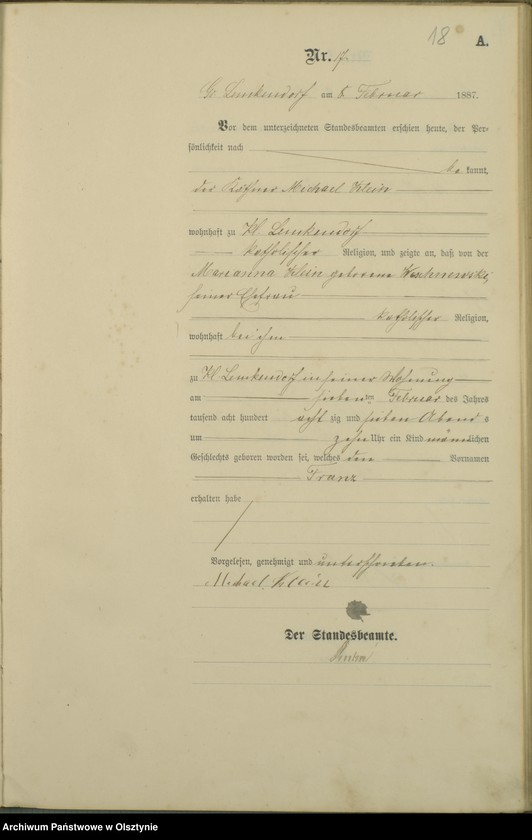 18 A.
Nr. 17.
Gr. Lemkendorf am 8. Februar 1887.
Vor dem unterzeichneten Standesbeamten erschien heute, der Per-
sönlichkeit nach
be kannt,
der Käthner Michael Klein
wohnhaft zu Kl Lemkendorf
katholischer Religion, und zeigte an, daß von der
Marianna Klein geborene
seiner Ehefrau
katholischer Religion,
wohnhaft bei ihm
zu Kl Lemkendorf in seiner Wohnung
am siebenten Februar des Jahres
tausend acht hundert acht zig und sieben Abends
um zehn Uhr ein Kind männlichen
Geschlechts geboren worden sei, welches den Vornamen
Franz
erhalten habe
Vorgelesen, genehmigt und unterschrieben.
Michael Klein
Der Standesbeamte.
Archiwum Państwowe w Olsztynie